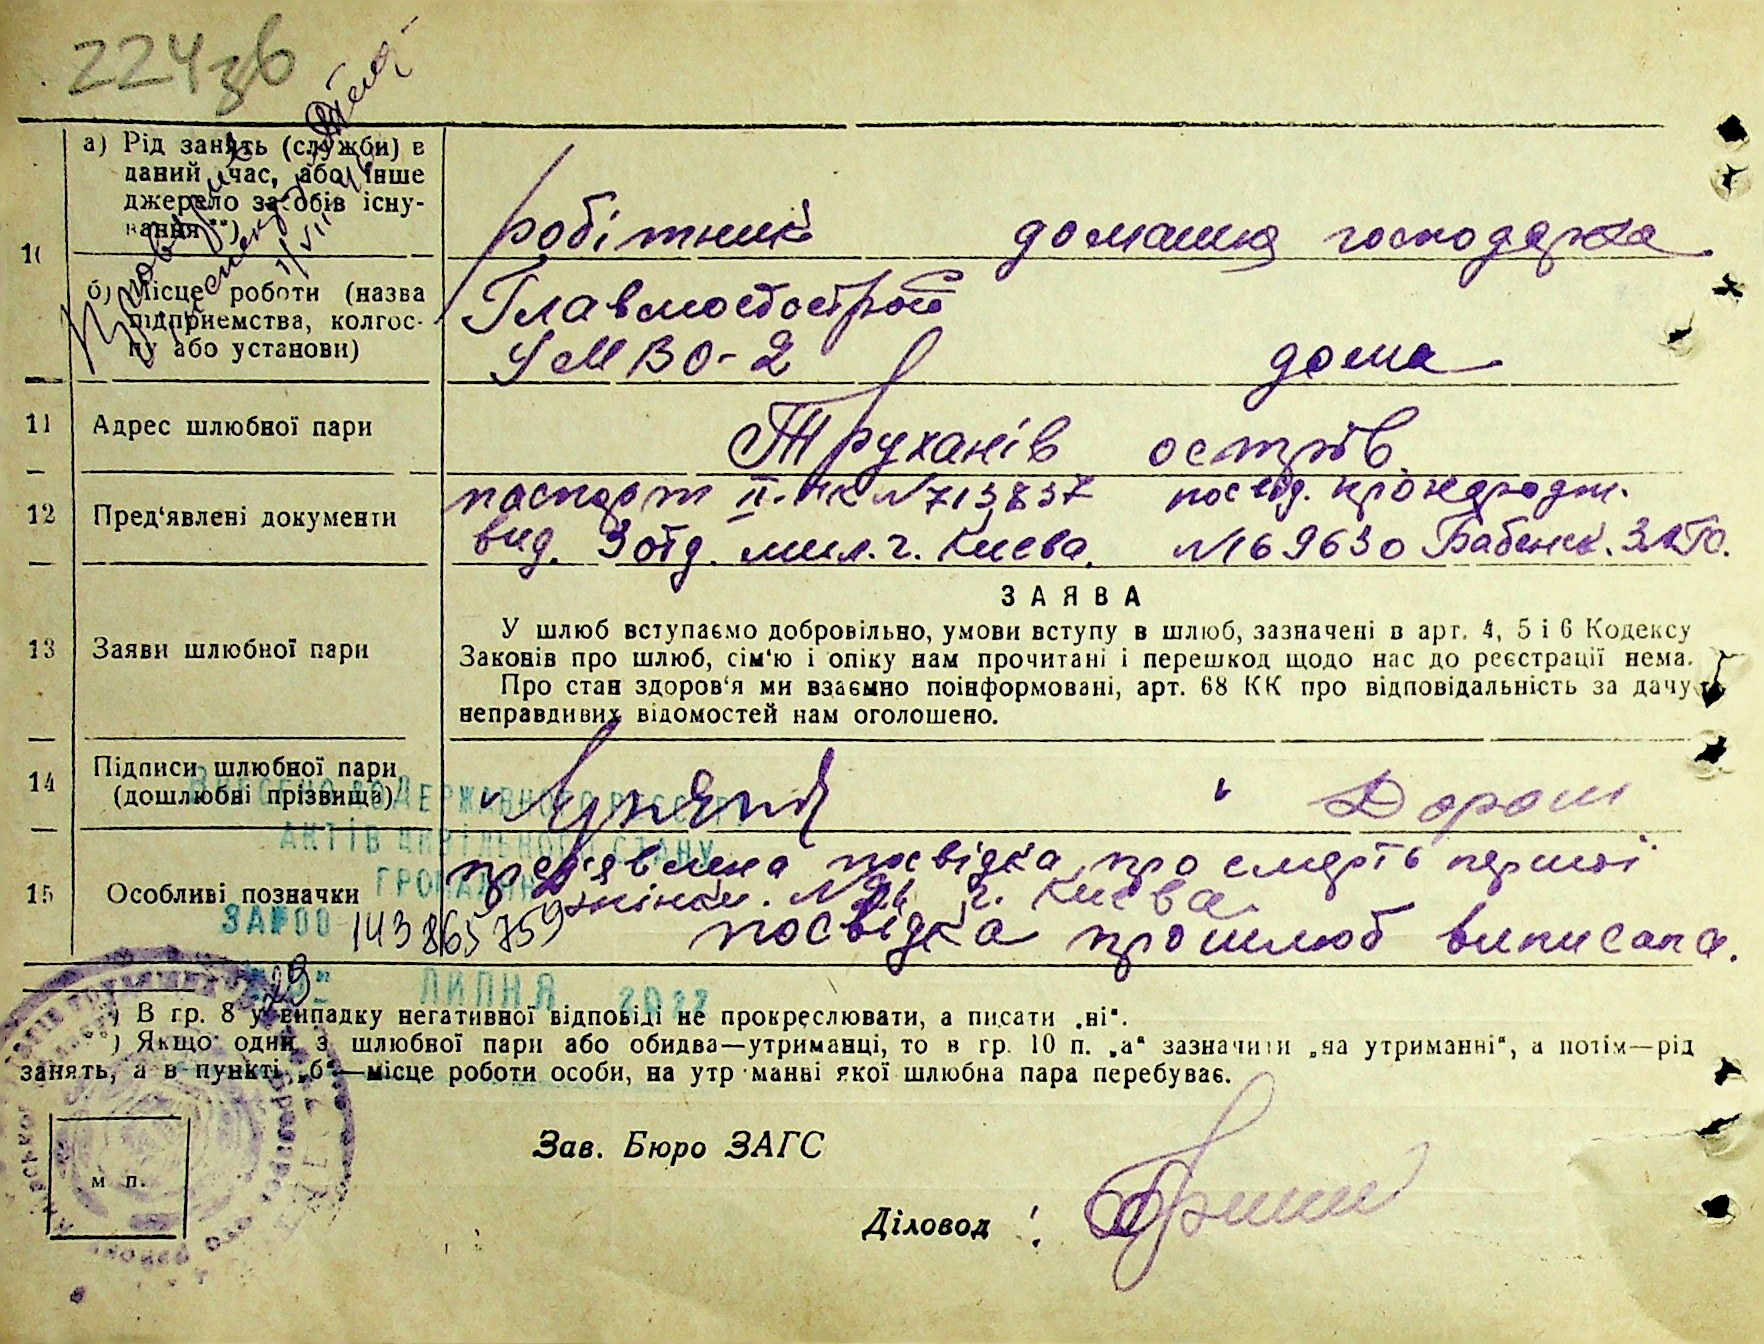 224зв
10
а) Рід занять (служби) в
даний час, або інше
джерело засобів існу-
вання **)
робітник домашня господарка
б) Місце роботи (назва
підприємства, колгос-
пу або установи)
Главмостострой
УМВО-2 дома
11 Адрес шлюбної пари
Труханів острів
12 Пред'явлені документи
паспорт II-НК №713837 посвід. про народж.
вид. 3 отд. мил. г. Києва. №169630 Бабенск. ЗАГС.
13 Заяви шлюбної пари
ЗАЯВА
У шлюб вступаємо добровільно, умови вступу в шлюб, зазначені в арт. 4, 5 і 6 Кодексу
Законів про шлюб, сім'ю і опіку нам прочитані і перешкод щодо нас до реєстрації нема.
Про стан здоров'я ми взаємно поінформовані, арт. 68 КК про відповідальність за дачу
неправдивих відомостей нам оголошено.
14 Підписи шлюбної пари
(дошлюбні прізвища)
Дорош
ВНЕСЕНО ДО ДЕРЖАВНОГО РЕЄСТРУ
АКТІВ ЦИВІЛЬНОГО СТАНУ
ГРОМАДЯН
ЗА №00 143865759
"29" ЛИПНЯ 2022
15 Особливі позначки
пред'явлена посвідка про смерть першої
жінки. г. Києва
посвідка про шлюб виписана.
*) В гр. 8 у випадку негативної відповіді не прокреслювати, а писати „ні".
**) Якщо один з шлюбної пари або обидва—утриманці, то в гр. 10 п. „а" зазначити „на утриманні", а потім—рід
занять, а в пункті „б"—місце роботи особи, на утриманні якої шлюбна пара перебуває.
м п.
Зав. Бюро ЗАГС
Діловод